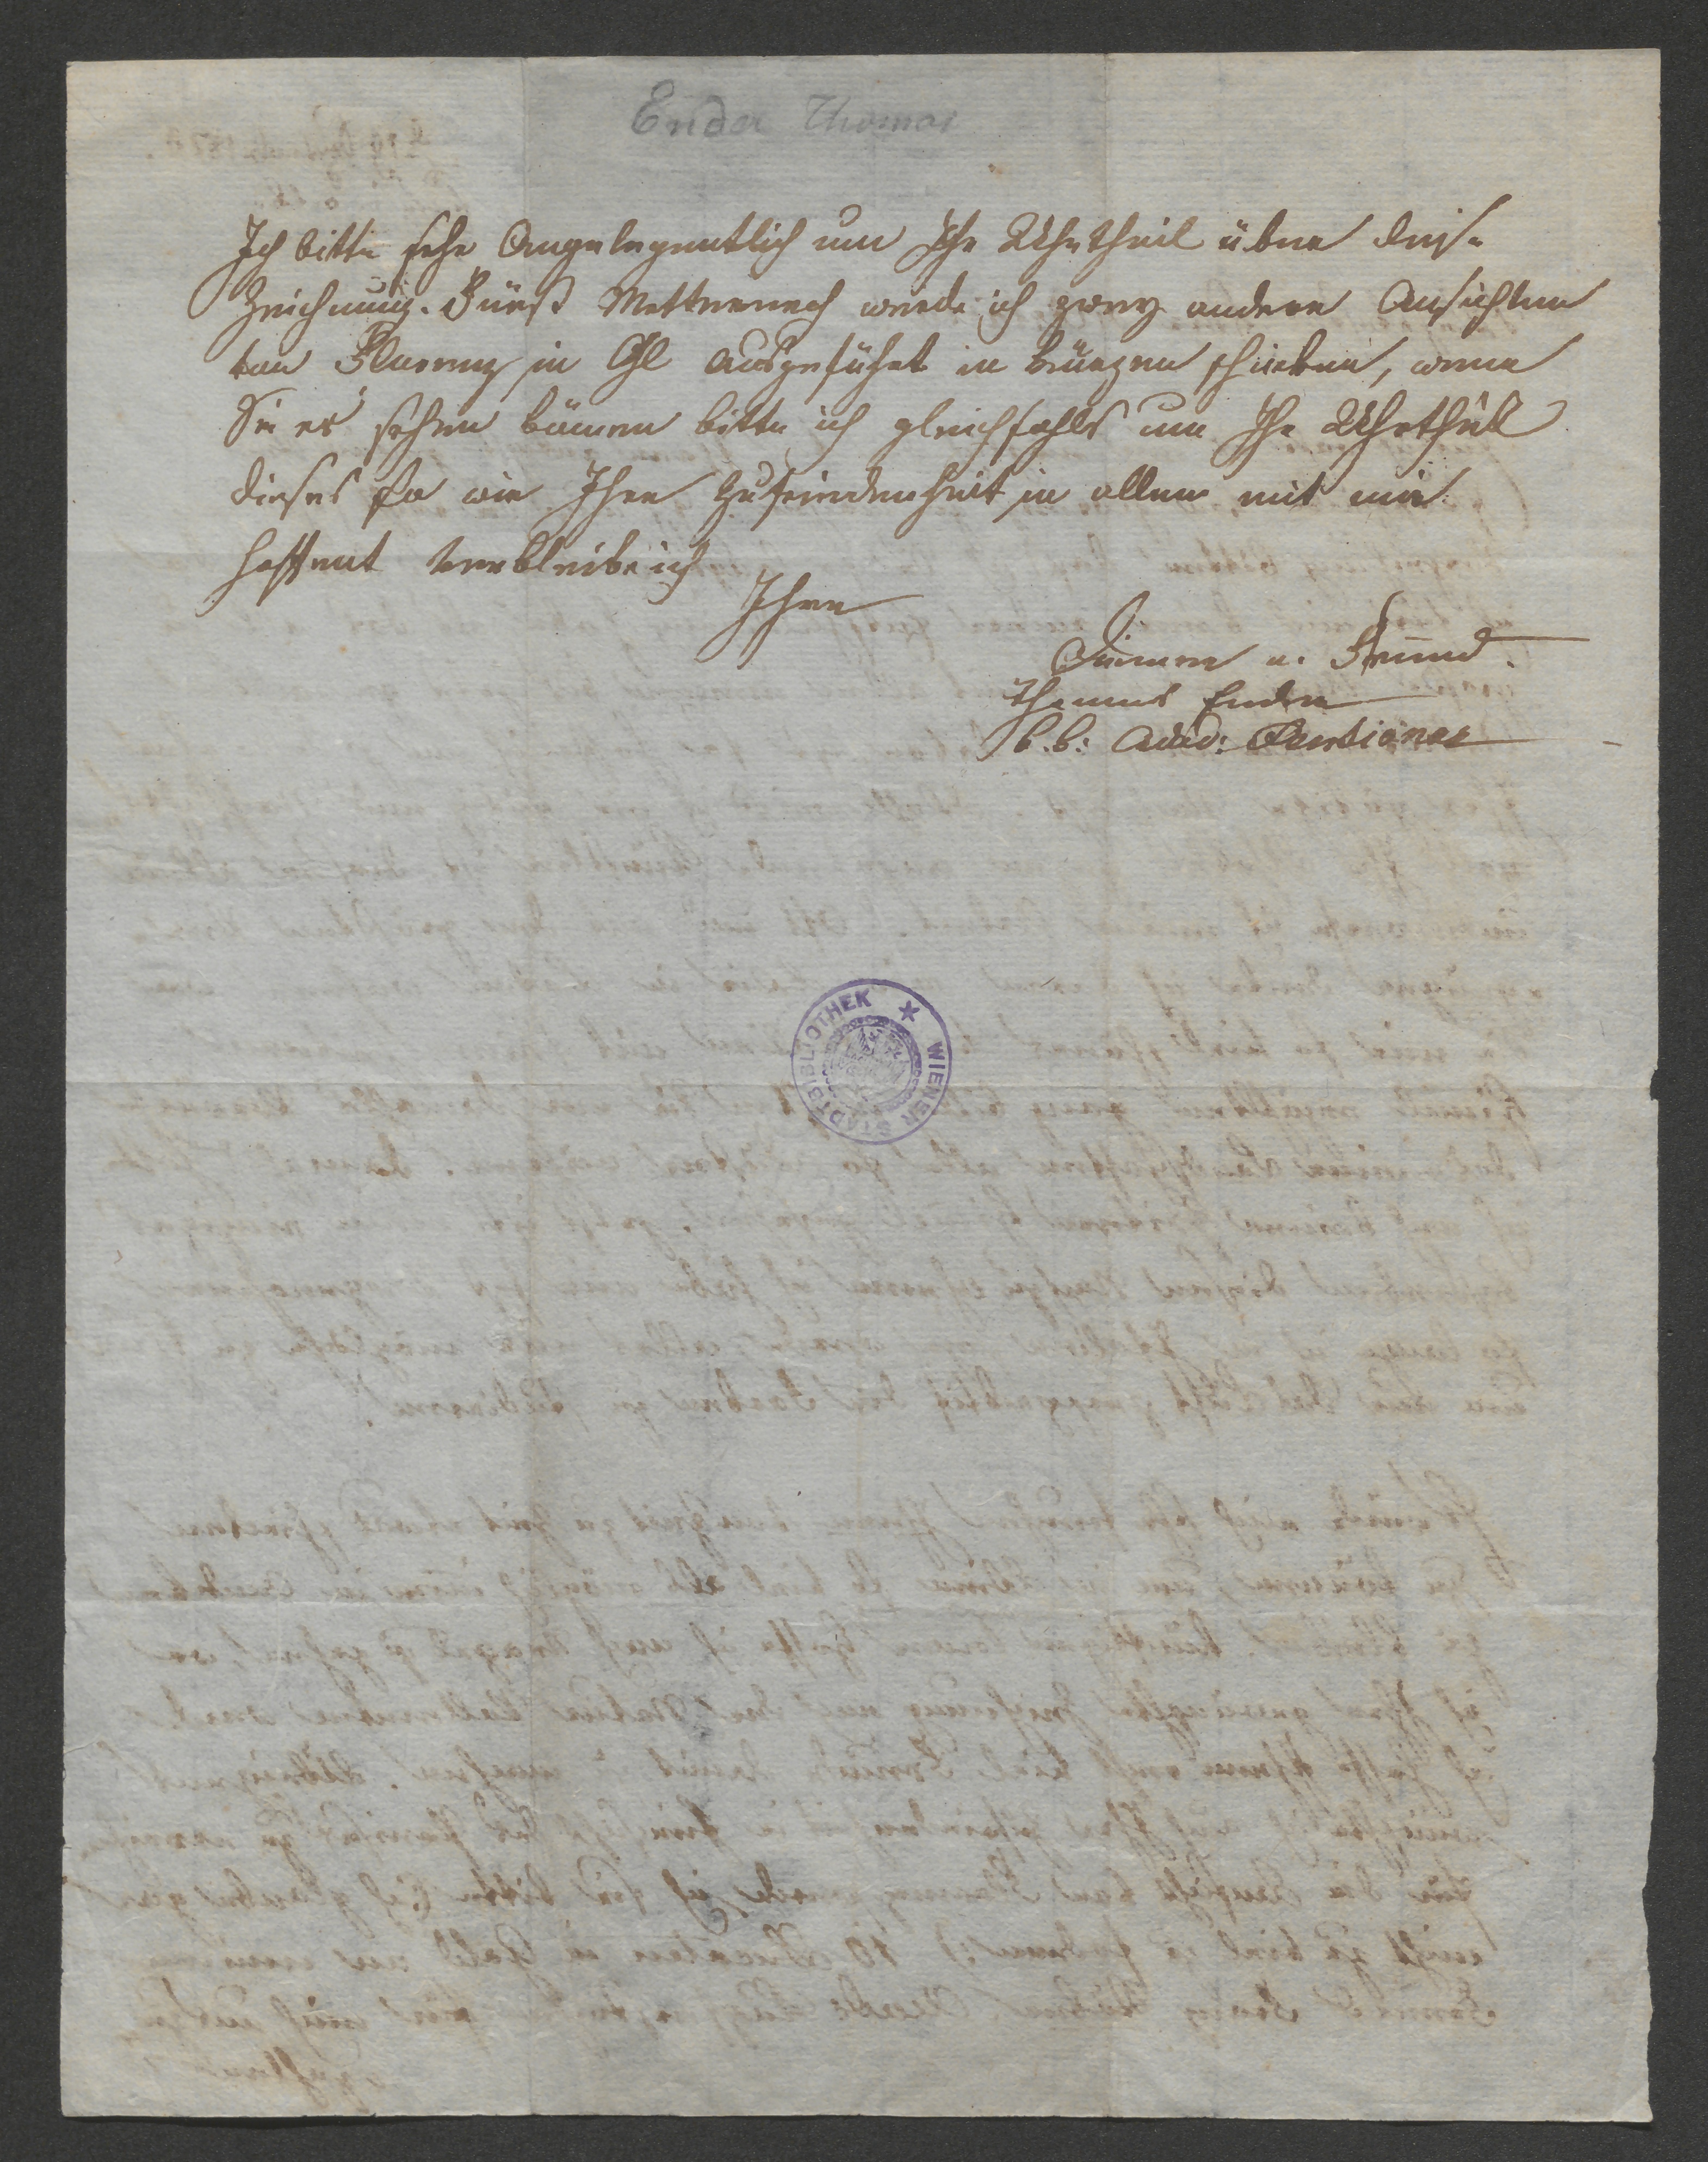 Ender Thomas
Ich bitte sehr Angelegentlich um Ihr Uhrtheil über diese
Zeichnung. Fürst Metternich werde ich zwey andere Ansichten
von Florenz in Öhl ausgeführt in kurzen schicken, wenn
Sie es sehen können bitte ich gleichfahls um Ihr Uhrtheil
dieses so wie Ihre Zufriedenheit in allem mit mir
hoffent verbleibe ich
Ihr
Diener u. Freund.
Thomas Ender
k. k. Acad: Pensionär
WIENER STADTBIBLIOTHEK